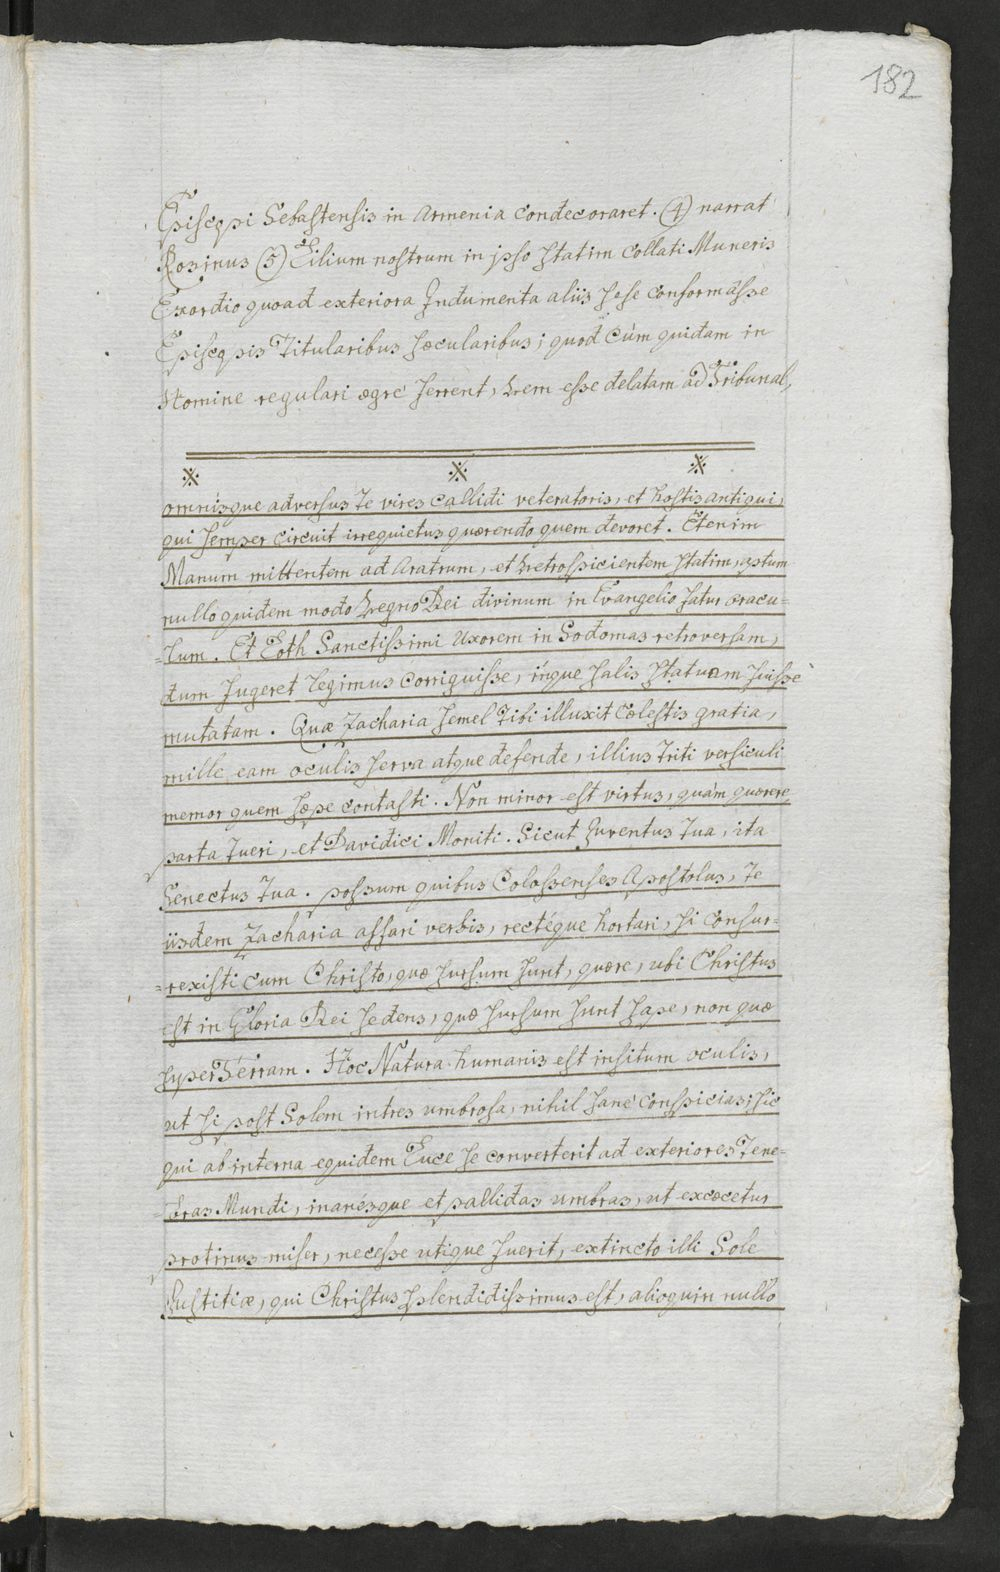 182
Episcopi Sebastensis in Armenia condecoraret. (4) narrat
Rosinus (5) Lilium nostrum in ipso statim collati Muneris
Exordio quoad exteriora Indumenta aliis sese conformasse
Episcopis Titularibus sæcularibus; quod cùm quidam in
Homine regulari ægrè ferrent, rem esse delatam ad Tribunal,
※ ※ ※
omnísque adversus te vires callidi veteratoris, et hostis antiqui,
qui semper circuit irrequietus quærendo quem devoret. Etenim
Manum mittentem ad Aratrum, et retrospicientem statim, aptum
nullo quidem modo Regno Dei divinum in Evangelio fatur oracu=
=lum. Et Loth Sanctissimi Uxorem in Sodomas retroversam,
dum fugeret legimus corriguisse, inque salis statuam fuisse
mutatam. Quæ Zacharia semel tibi illuxit cælestis gratia,
mille eam oculis serva atque defende, illius triti versiculi
memor quem sæpe contasti. Non minor est virtus, quàm quærere,
parta tueri, et Davidici Moniti. Sicut Juventus tua, ita
Senectus tua. possum quibus Colossenses Apostolus, te
iisdem Zacharia affari verbis, rectéque hortari, si consur=
=rexisti cum Christo, quæ sursum sunt, quære, ubi Christus
est in Gloria Dei sedens, quæ sursum sunt sape, non quæ
super Terram. Hoc Natura humanis est insitum oculis,
ut si post Solem intres umbrosa, nihil sanè conspicias; sic
qui ab interna equidem Luce se converterit ad exteriores Tene=
=bras Mundi, inanesque et pallidas umbras, ut excæcetur
protinus miser, necesse utique fuerit, extincto illi Sole
Justitiæ, qui Christus splendidissimus est, alioquin nullo